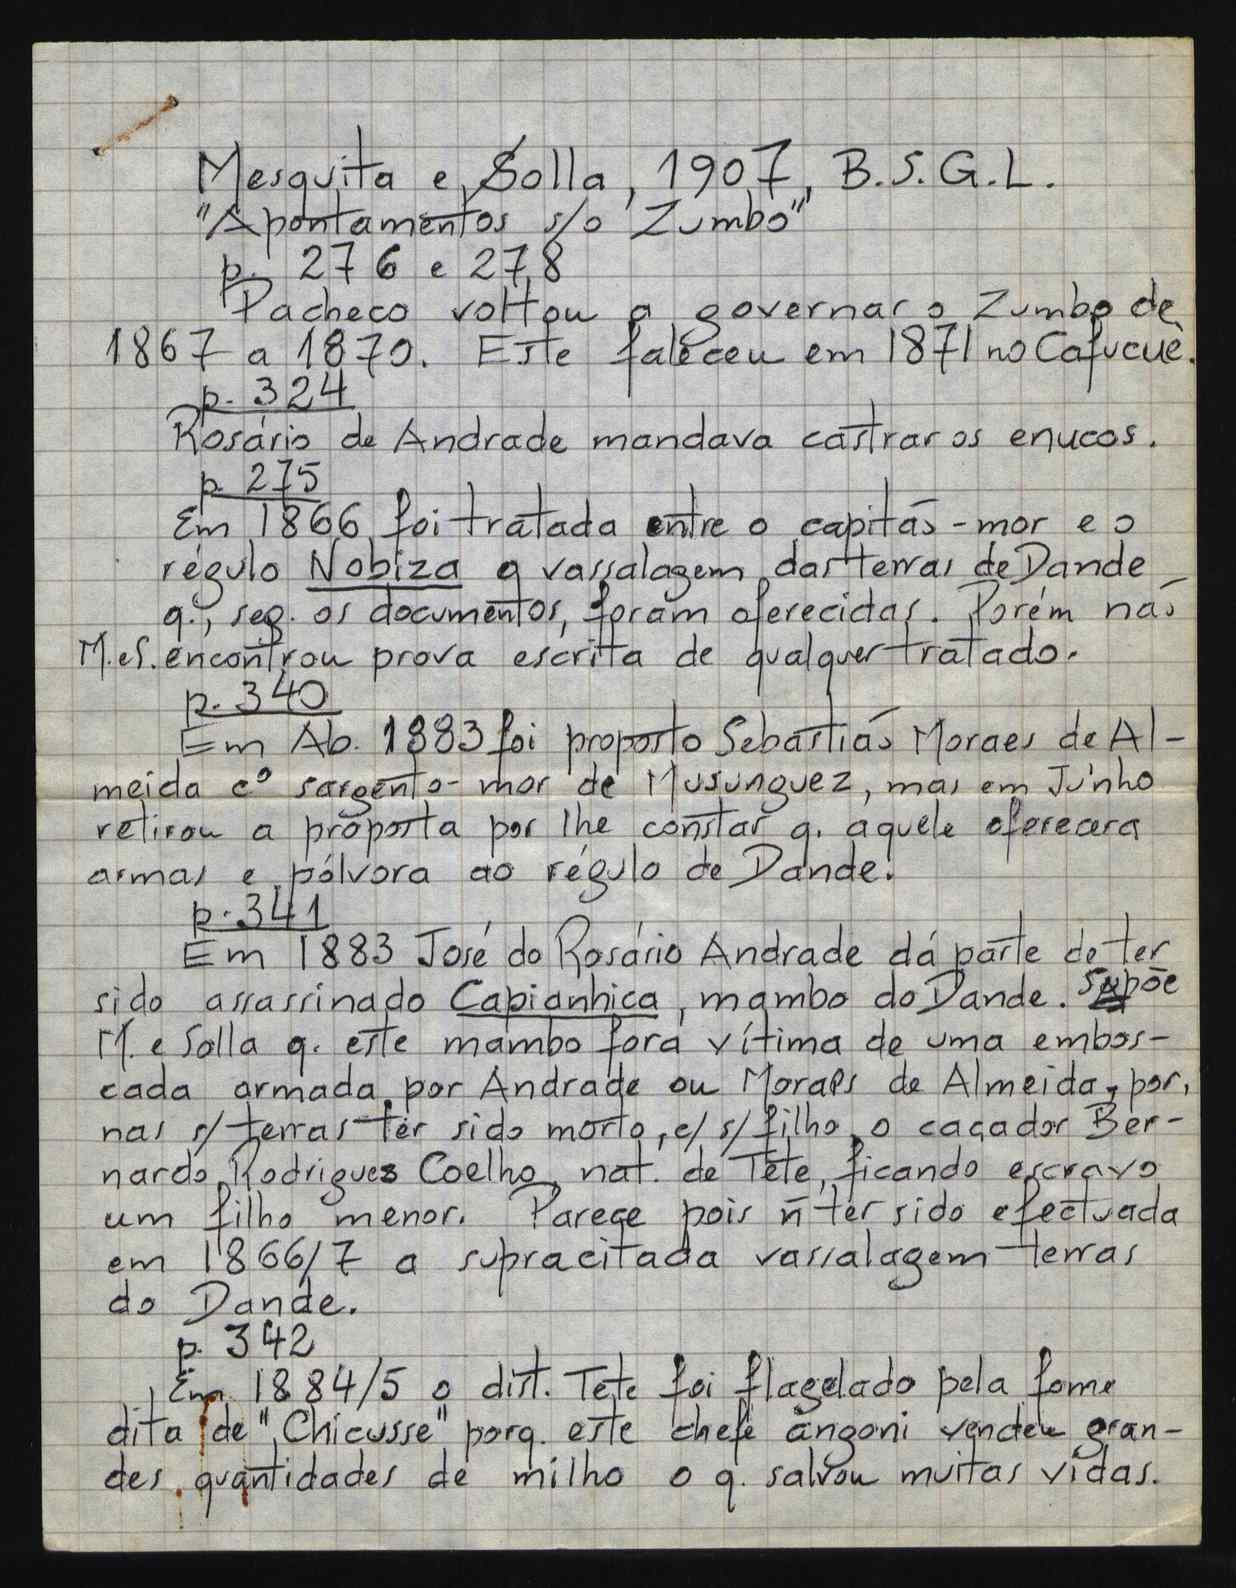 Mesquita e Solla, 1907, B.S.G.L.
"Apontamentos s/o Zumbo"
p. 276 e 278
Pacheco voltou a governar o Zumbo de
1867 a 1870. Este faleceu em 1871 no Cafucuè.
p. 324
Rosário de Andrade mandava castrar os enucos.
p. 275
Em 1866 foi tratada entre o capitão-mor e o
régulo Nobiza a vassalagem das terras de Dande
q., seg. os documentos, foram oferecidas. Porém não
M.eS. encontrou prova escrita de qualquer tratado.
p. 340
Em Ab. 1883 foi proposto Sebastião Moraes de Al-
meida cº sargento-mor de Musunguez, mas em Junho
retirou a proposta por lhe constar q. aquele oferecera
armas e pólvora ao régulo de Dande.
p. 341
Em 1883 José do Rosário Andrade dá parte de ter
sido assassinado Capianhica, mambo do Dande. Supõe
M. e Solla q. este mambo fora vítima de uma embos-
cada armada por Andrade ou Moraes de Almeida, por,
nas s/ terras ter sido morto, c/ s/ filho, o caçador Ber-
nardo Rodrigues Coelho, nat. de Tete, ficando escravo
um filho menor. Parece pois ñ ter sido efectuada
em 1866/7 a supracitada vassalagem terras
do Dande.
p. 342
Em 1884/5 o dist. Tete foi flagelado pela fome
dita de "Chicusse" porq. este chefe angoni vendeu gran-
des quantidades de milho o q. salvou muitas vidas.